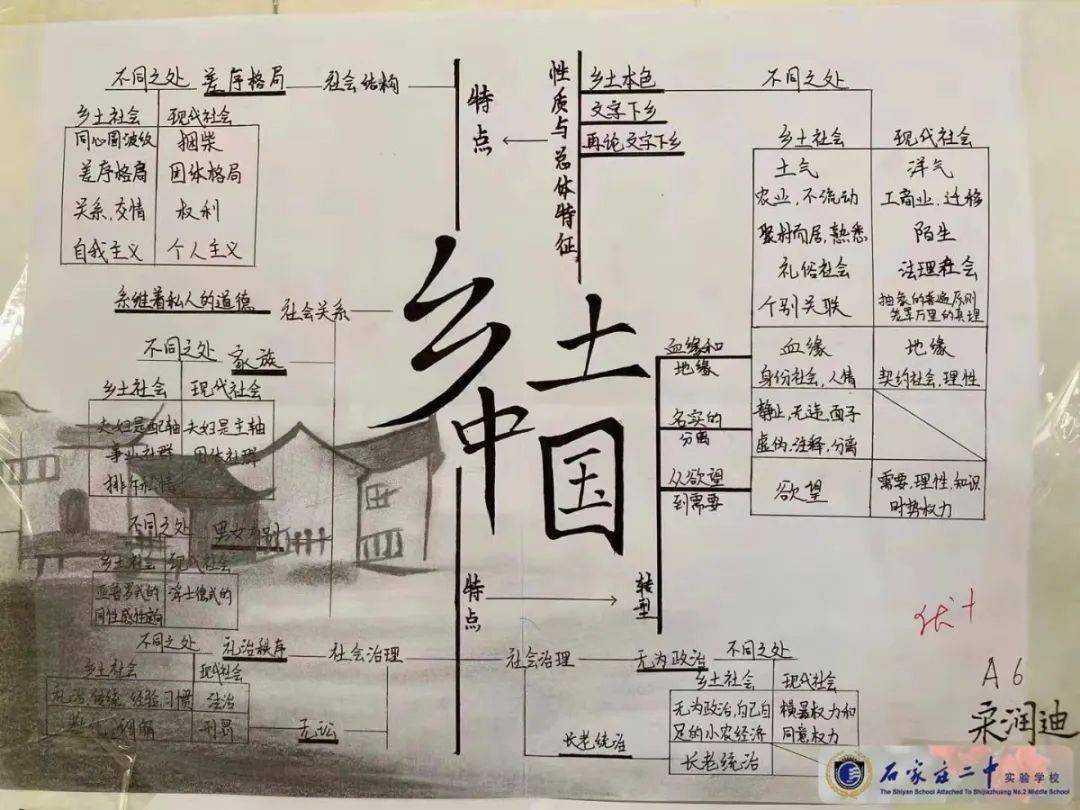 乡土
中国
特点
社会结构
差序格局
不同之处
乡土社会 现代社会
同心圆波纹 捆柴
差序格局 团体格局
关系,交情 权利
自我主义 个人主义
社会关系
系维着私人的道德
家族
不同之处
乡土社会 现代社会
夫妇是配轴 夫妇是主轴
事业社群
男女有别
不同之处
乡土社会 现代社会
亚普罗式的 浮士德式的
特点
社会治理
礼治秩序
不同之处
乡土社会 现代社会
经验,习惯 法治
刑罚
无讼
性质与总体特征
乡土本色
文字下乡
再论文字下乡
不同之处
乡土社会 现代社会
土气 洋气
农业,不流动 工商业,迁移
聚村而居,熟悉 陌生
礼俗社会 法理社会
个别关联 抽象的普遍原则
笼罩万里的真理
血缘和
地缘
血缘 地缘
身份社会,人情 契约社会,理性
名实的
分离
静止,无违,面子
虚伪,注释,分离
从欲望
到需要
欲望 需要,理性,知识
时势权力
转型
社会治理
无为政治
不同之处
乡土社会 现代社会
无为政治,自己自 横暴权力和
足的小农经济 同意权力
长老统治
长老统治
优+
A6
润迪
石家庄二中实验学校
The Shiyan School Attached To Shijiazhuang No.2 Middle School